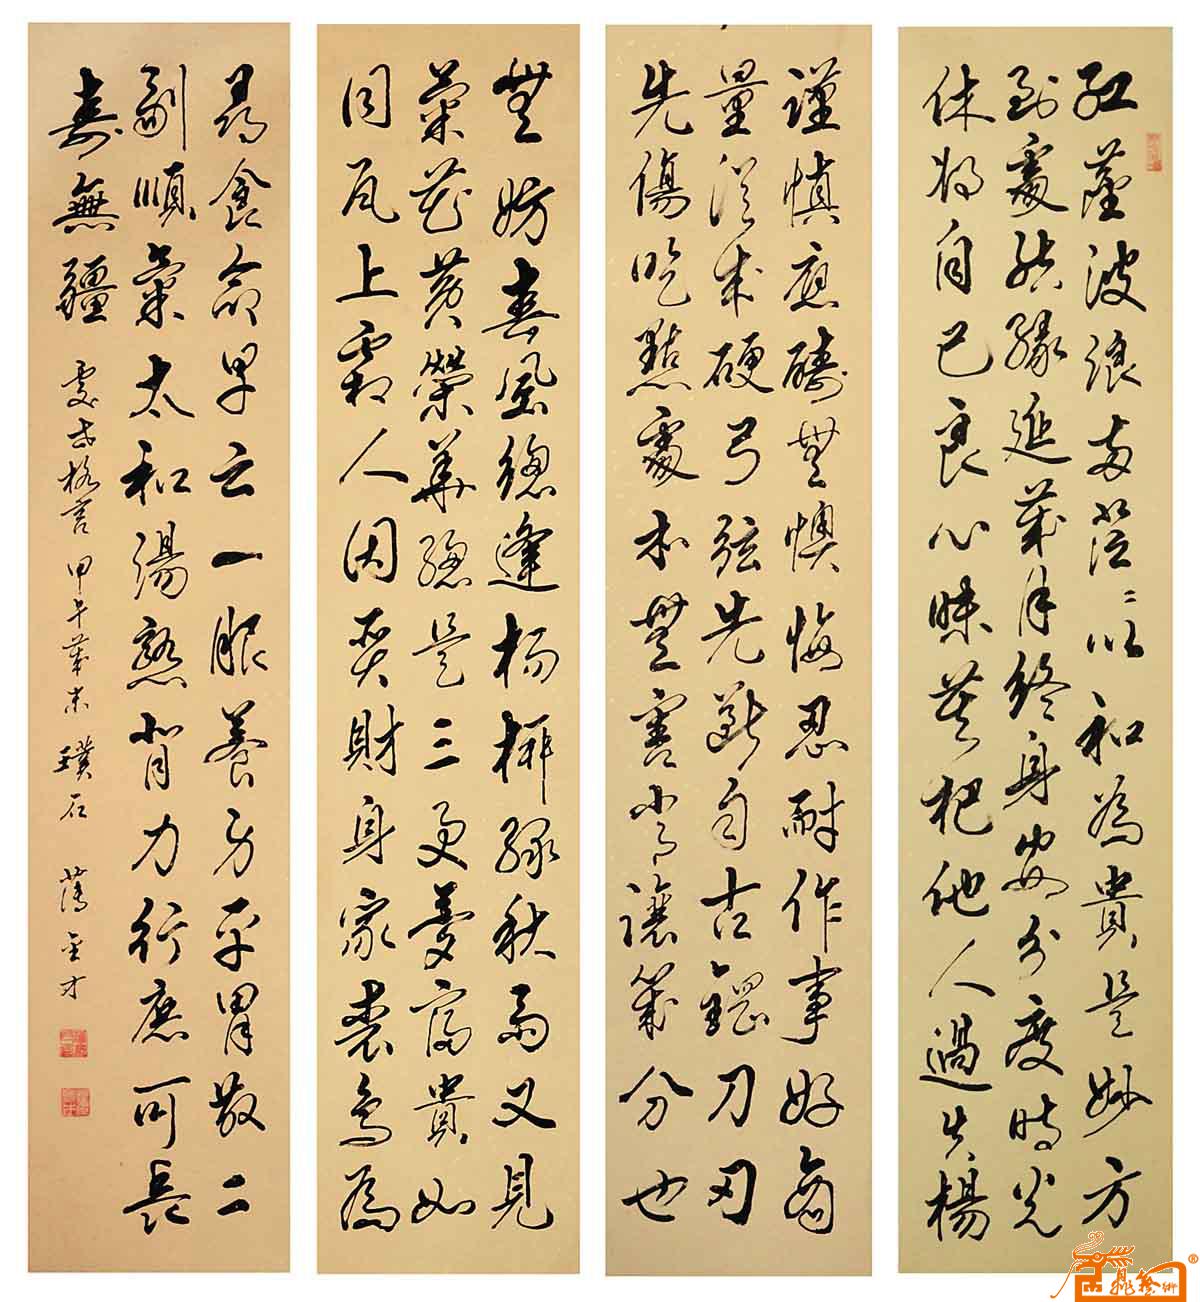 紅塵波浪兩茫々以和為貴是妙方
到處隨緣延歲月終身安分度時光
休將自己良心昧莫把他人過失揚
謹慎應酬無懊悔忍耐作事好商
量從來硬弓弦先斷自古鋼刀刃
先傷吃點虧亦無害讓幾分也
無妨春風總逢楊柳綠秋雨又見
菊花黃榮華總是三更夢富貴如
同瓦上霜人因貪財身家喪鳥為
尋食命早亡一服養方平胃散二
劑順氣太和湯熟背力行應可長
壽無疆 處世格言 甲午歲末 璞石 薄金才